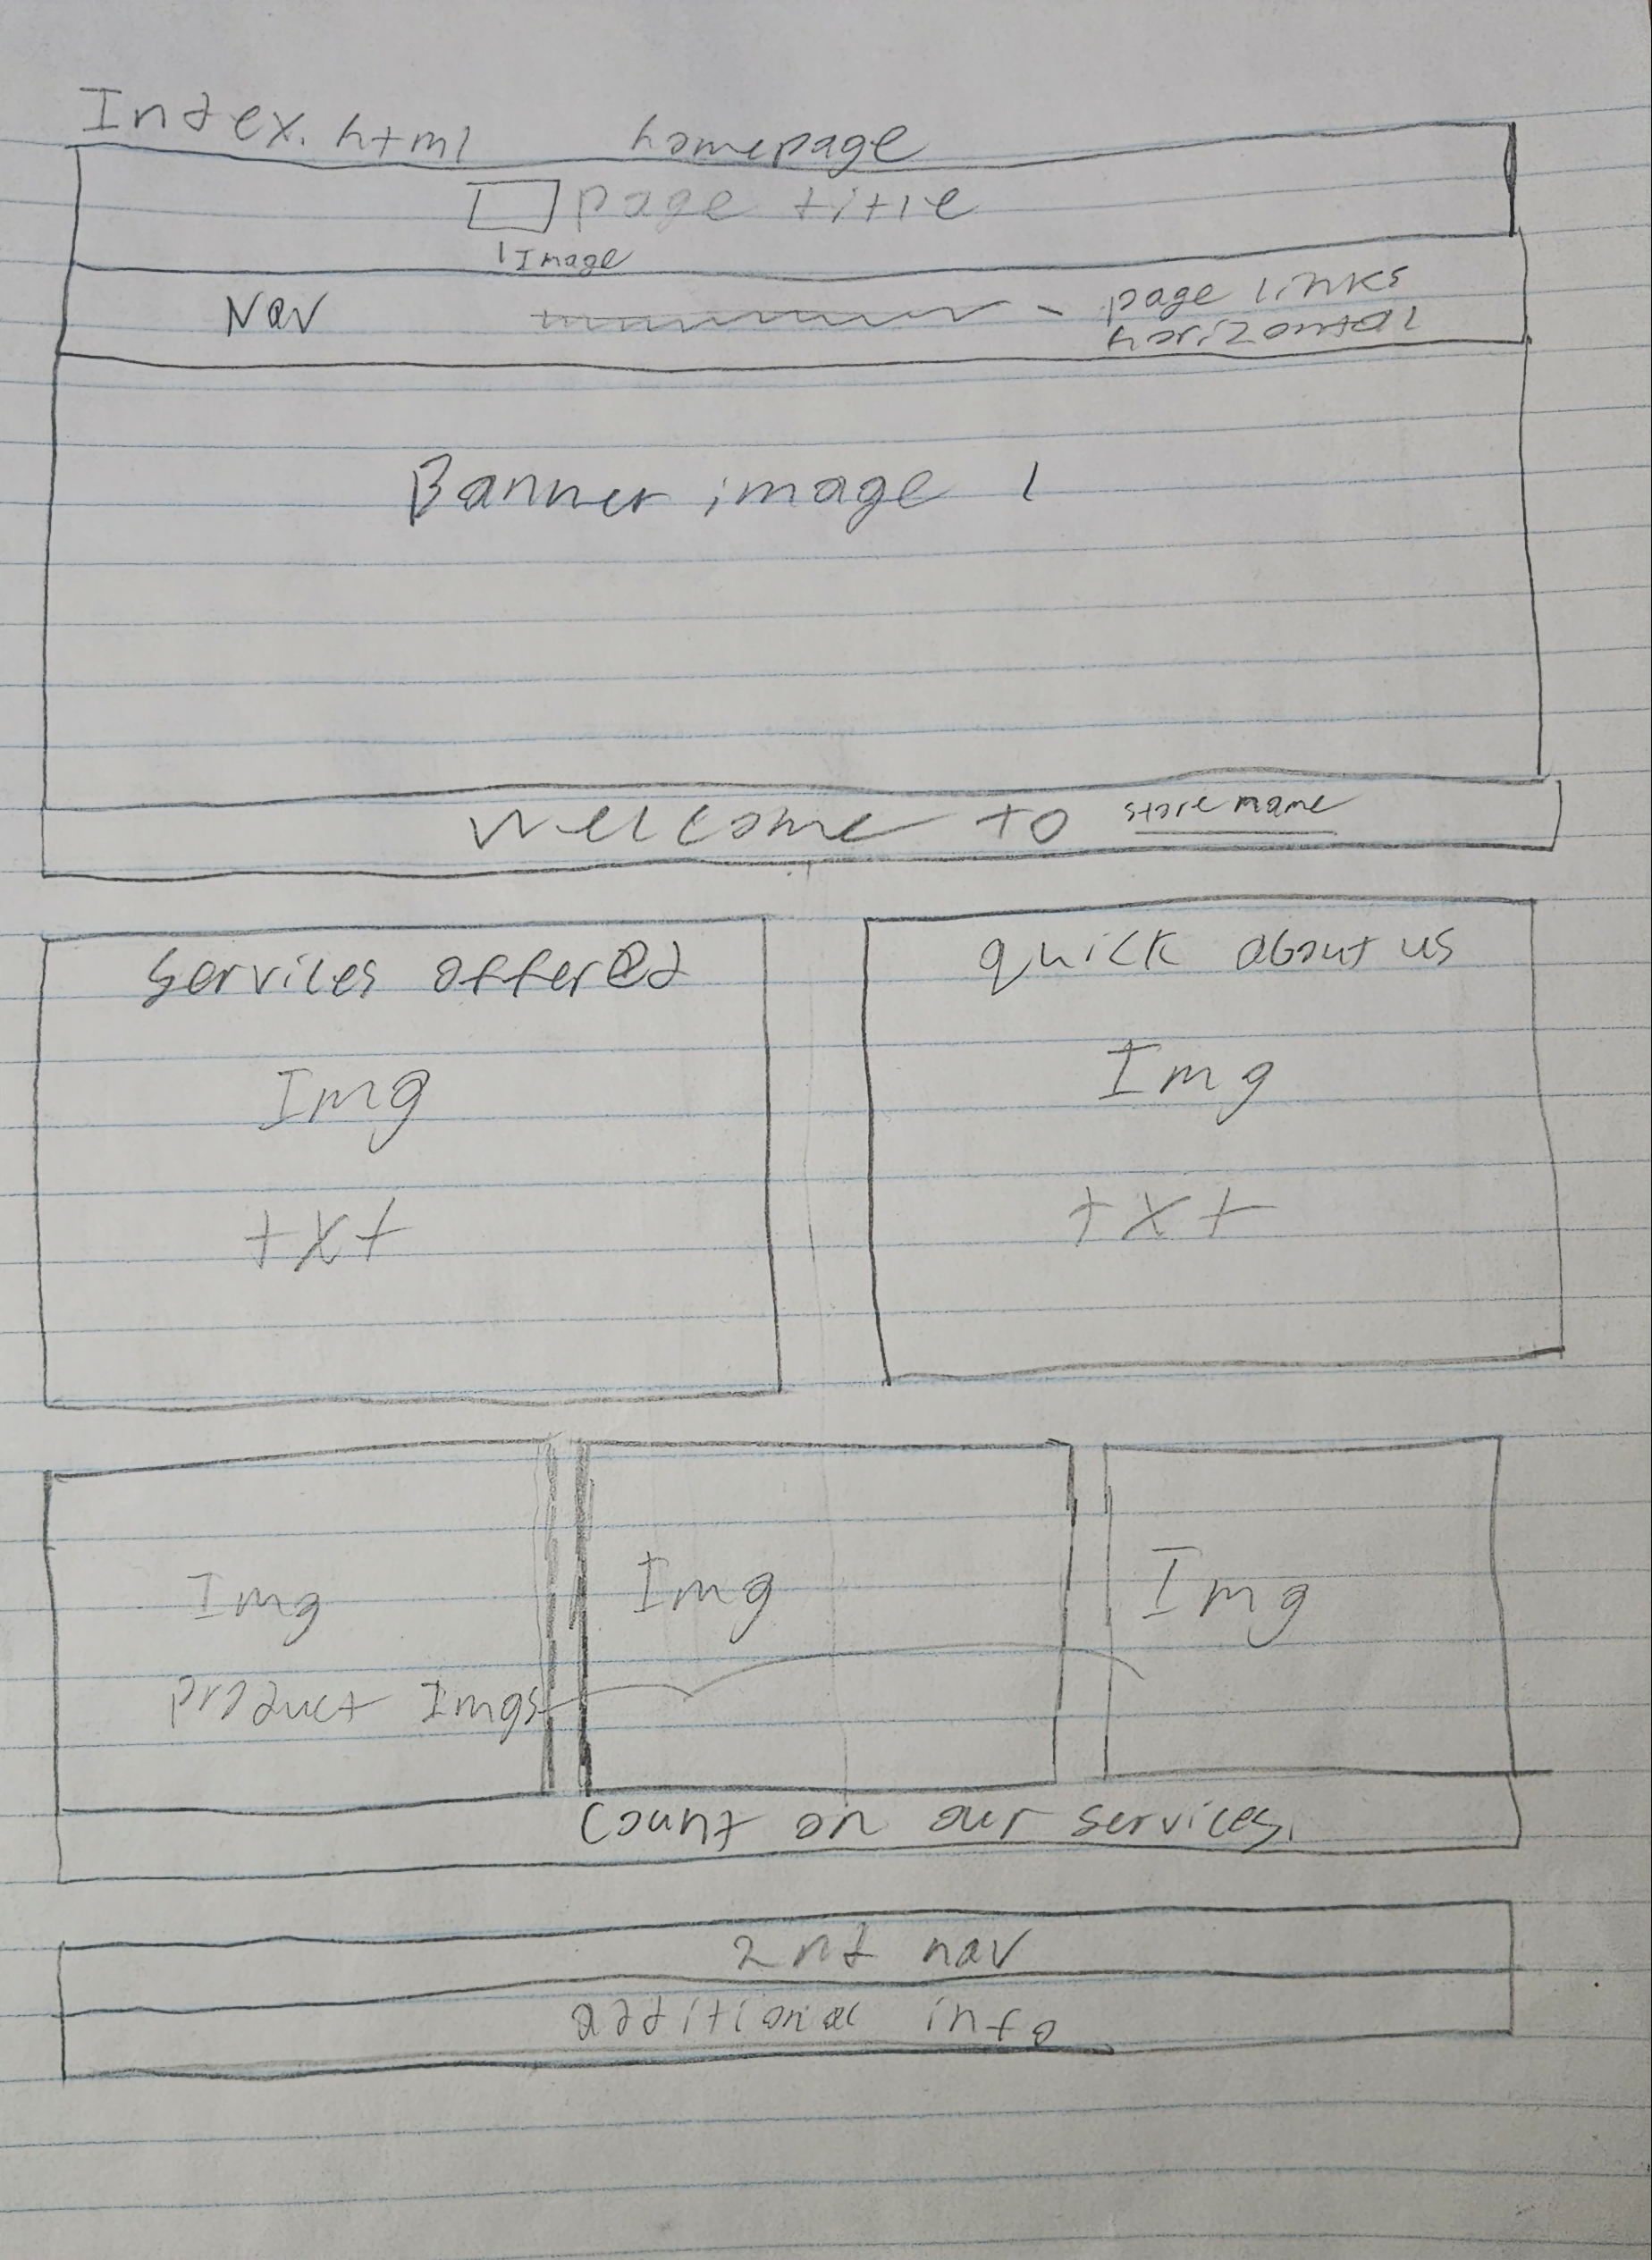 Index.html homepage
page title
1 Image
Nav - page links
horizontal
Banner image 1
Welcome to store name
Services offered
Img
txt
quick about us
Img
txt
Img
Product Imgs
Img
Img
Count on our services.
2nd nav
additional info